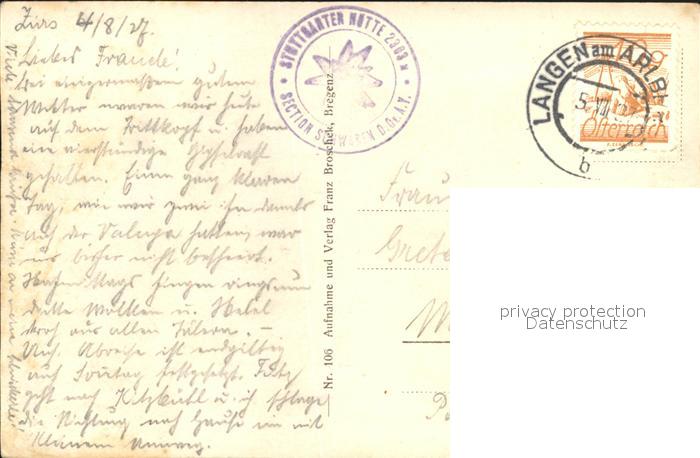 Zürs 4/8/27.
Liebes Fraule!
Bei einigermaßen gutem
Wetter waren wir heute
auf dem Trittkopf u. haben
eine vierstündige Gipfelrast
gehalten. Einen ganz klaren
Tag, wie wir zwei ihn damals
auf der Valuga hatten, war
uns bisher nicht beschert.
Nachmittags hingen ringsum
dicke Wolken u. Nebel
kroch aus allen Tälern. –
Uns. Abreise ist endgiltig
auf Sonntag festgesetzt. Fritz
geht nach Kitzbühl u. ich schlage
die Richtung nach Hause ein mit
kleinem Umweg.
Viele
STUTTGARTER HÜTTE 2303 M
SECTION SCHWABEN D.Oe.A.V.
Nr. 106 Aufnahme und Verlag Franz Broschek, Bregenz
LANGEN am ARLB
5 VIII
b
Österreich
Frau
Grete
privacy protection
Datenschutz